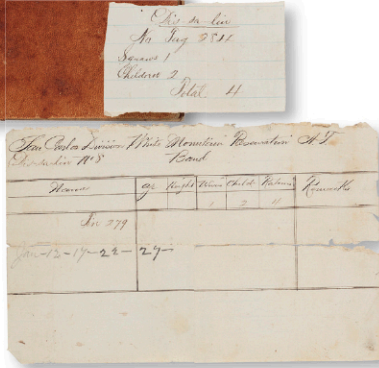 Chis-da-lin
No Tag 284
Squaws 1
Children 2
Total 4
San Carlos Division White Mountain Reservation A.T.
Band
Names age Height Wives Childn Rations Remarks
279
1 2 4
Jan-12-17-22-27-